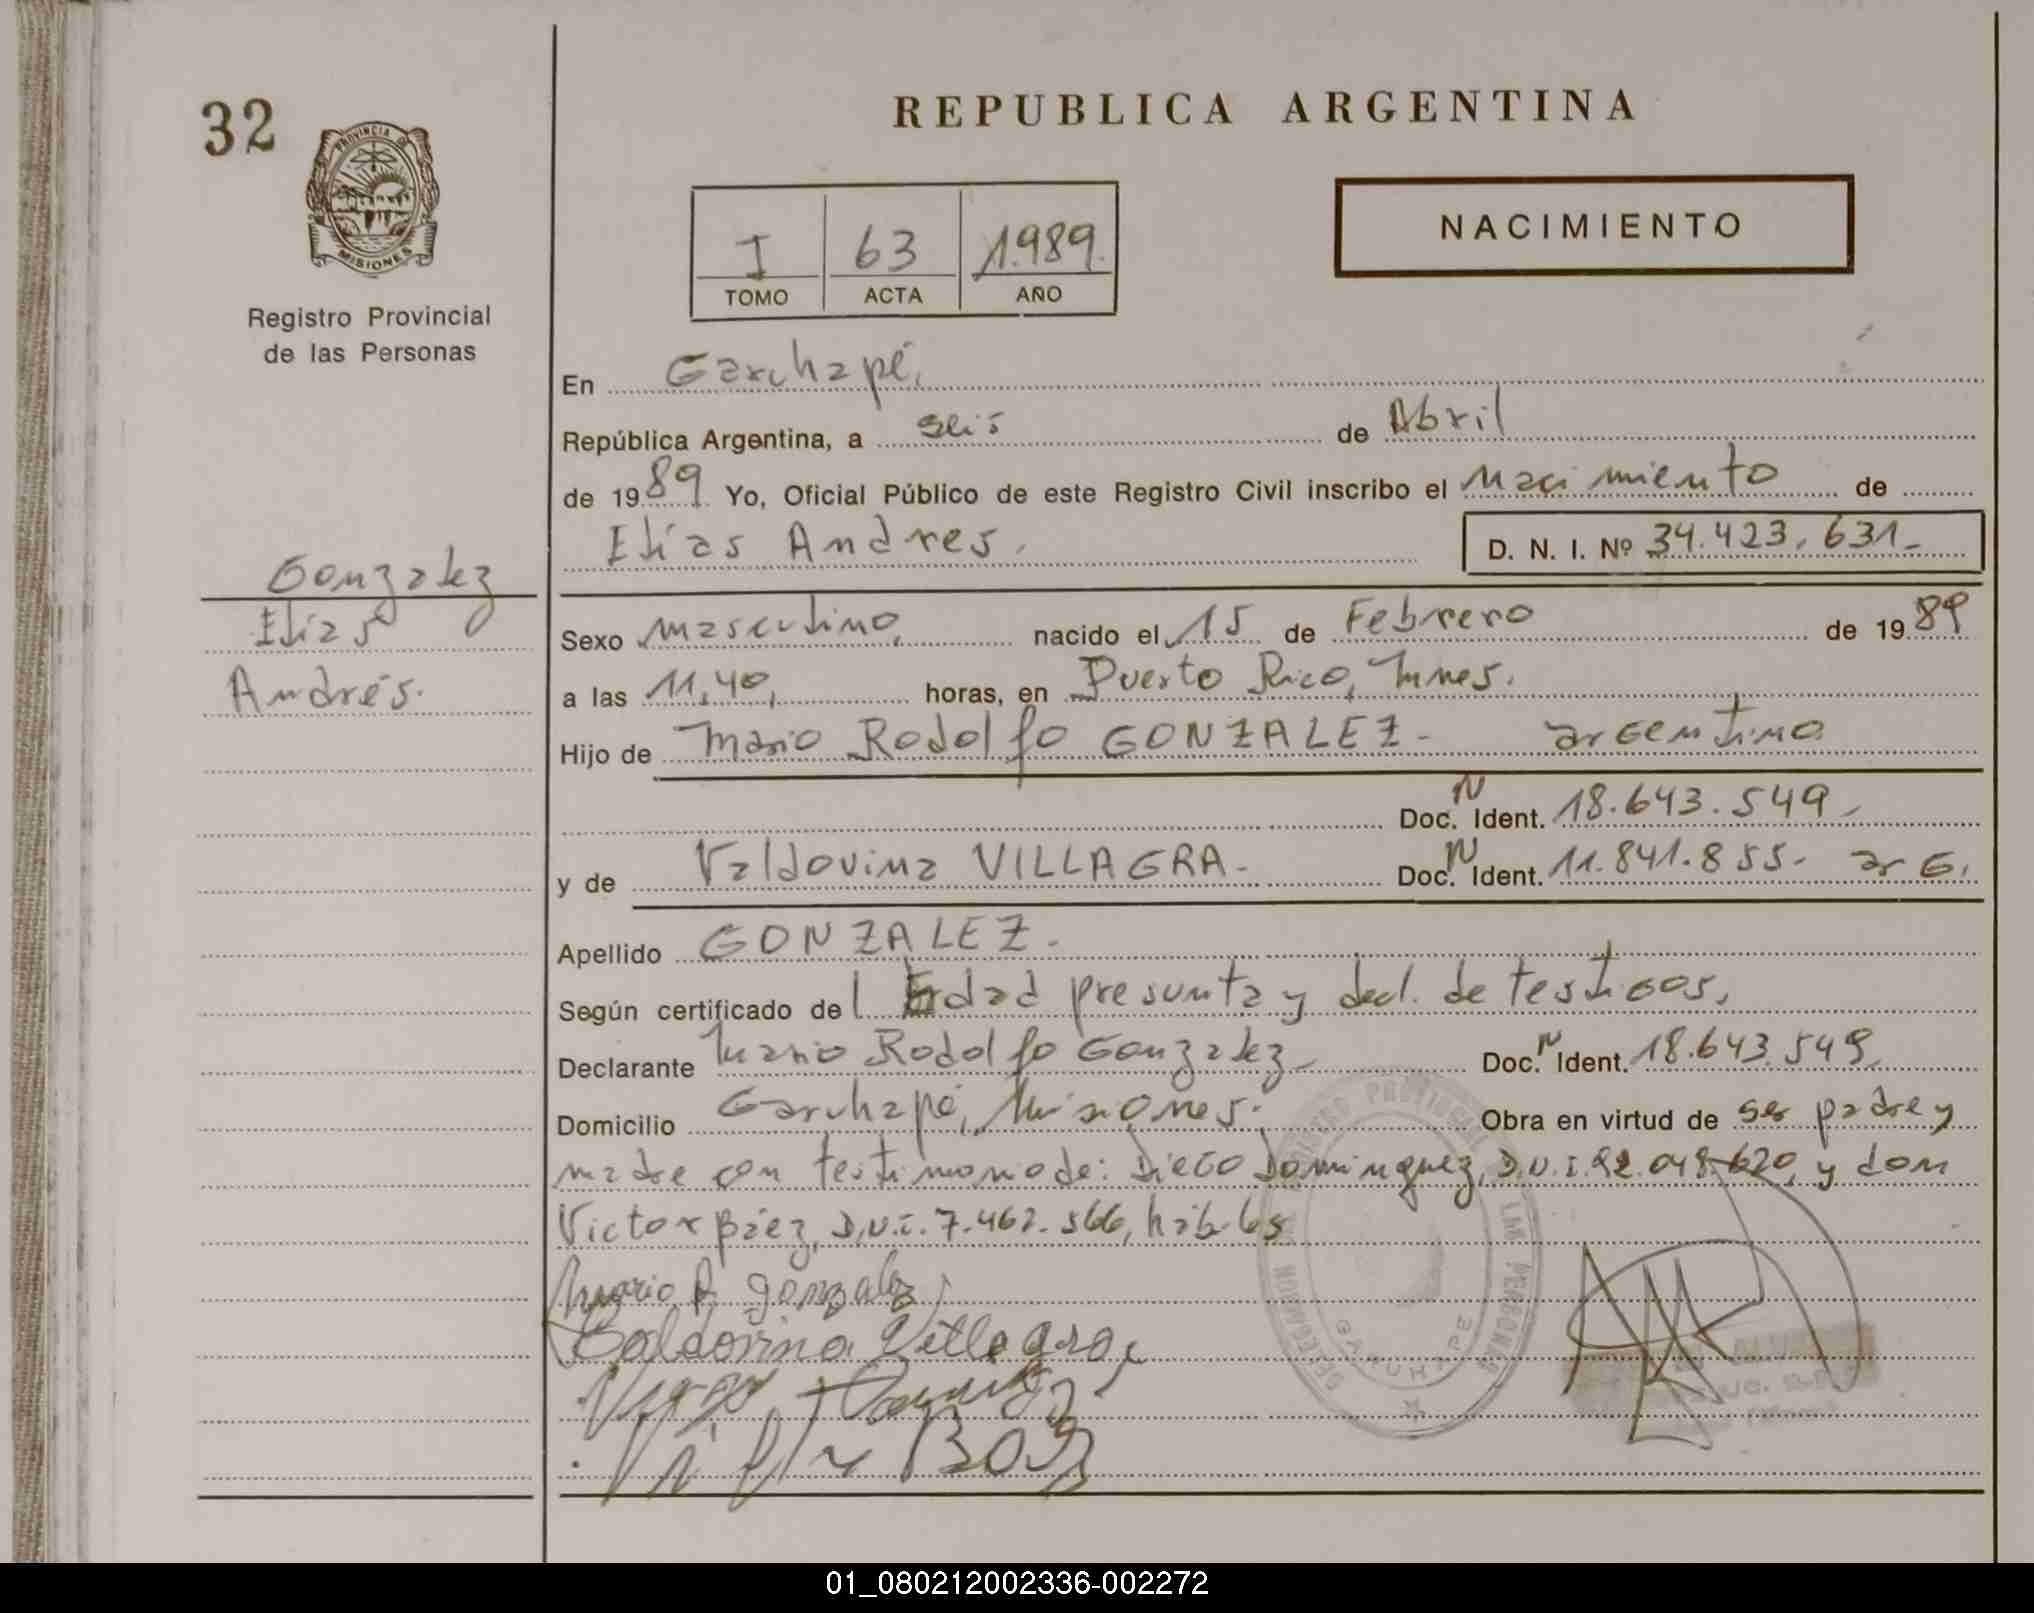 32
REPUBLICA ARGENTINA
PROVINCIA DE
MISIONES
Registro Provincial
de las Personas
I 63 1.989.
TOMO ACTA AÑO
NACIMIENTO
En Garuhapé,
República Argentina, a seis de Abril
de 1989. Yo, Oficial Público de este Registro Civil inscribo el Nacimiento de
Elías Andres, D. N. I. Nº 34.423.631-
Gonzalez
Elías
Andrés.
Sexo masculino, nacido el 15 de Febrero de 1989
a las 11,40, horas, en Puerto Rico, Mnes.
Hijo de Mario Rodolfo GONZALEZ - argentino
Doc. N Ident. 18.643.549-
y de Valdovina VILLAGRA - Doc. N Ident. 11.841.855- arg.
Apellido GONZALEZ -
Según certificado de Edad presunta y decl. de testigos,
Declarante Mario Rodolfo Gonzalez- Doc. N Ident. 18.643.549,
Domicilio Garuhapé, Misiones. Obra en virtud de ser padre y
madre con testimonio de: Diego Dominguez, D.N.I. y don
Victor Báez, D.N.I. 7.462.566, hábiles
Mario R gonzalez
Baldovina Villagra
GARUHAPE
01_080212002336-002272